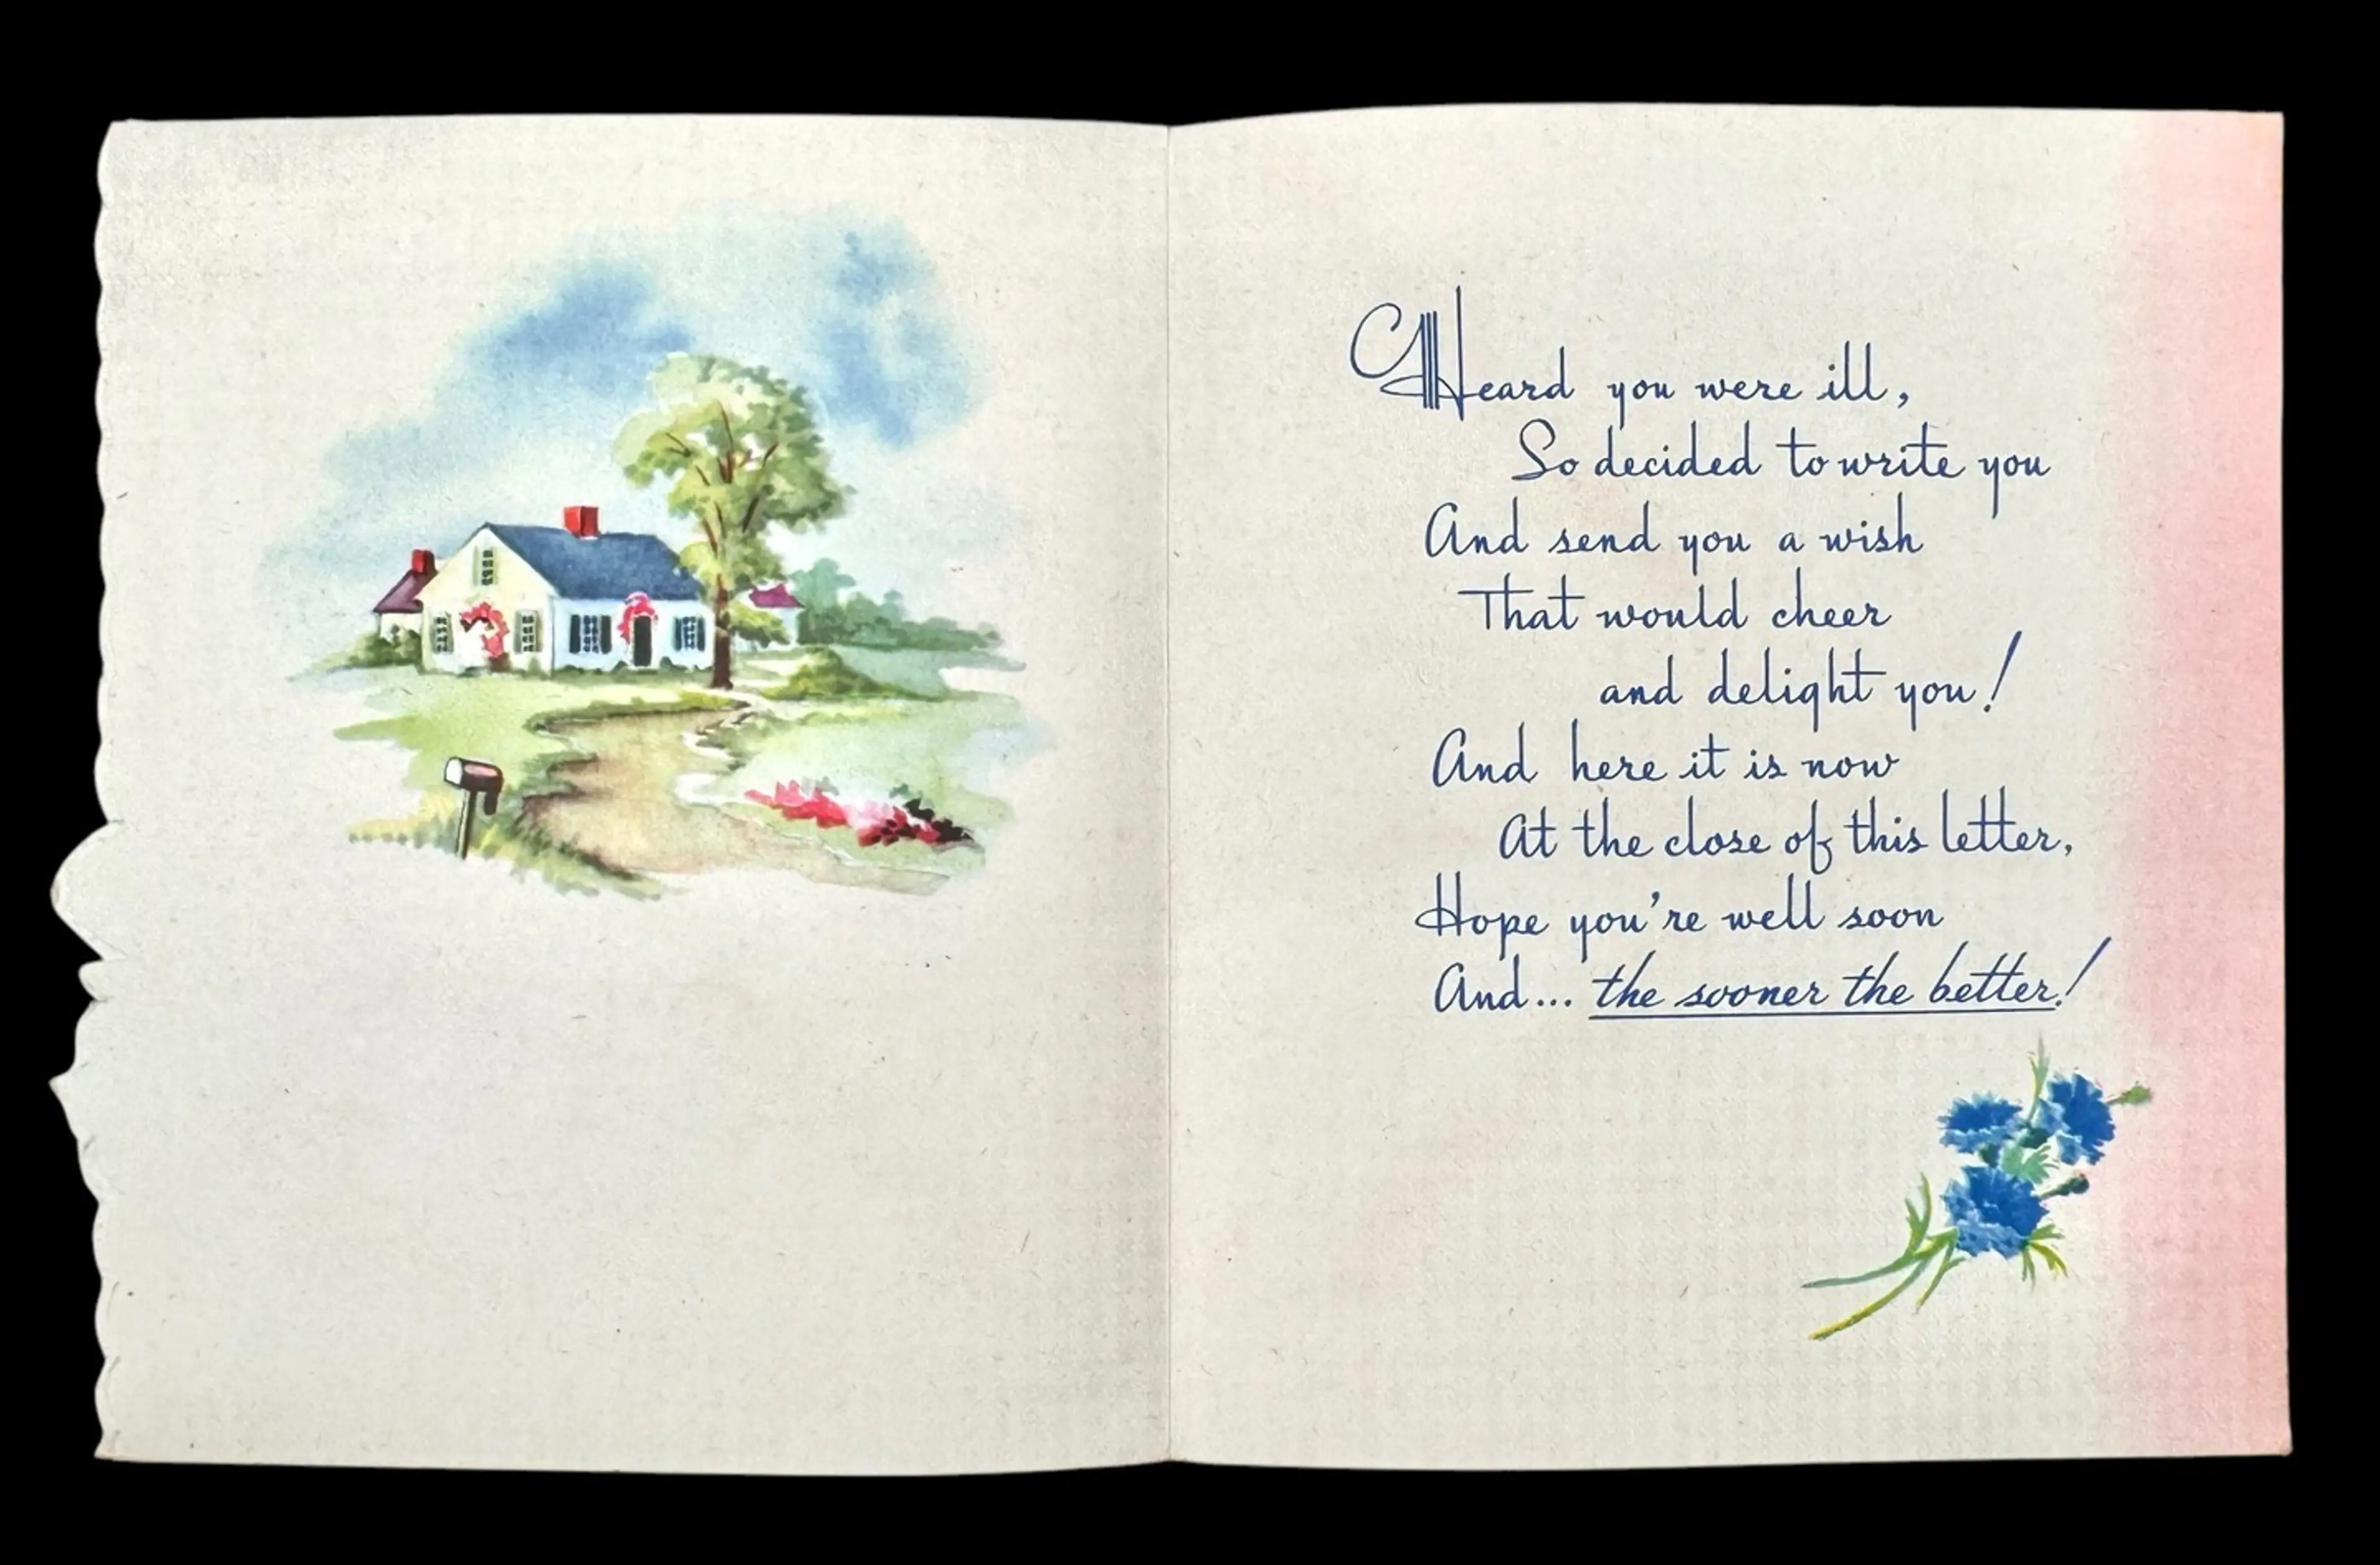 Heard you were ill,
So decided to write you
And send you a wish
That would cheer
and delight you!
And here it is now
At the close of this letter,
Hope you're well soon
And... the sooner the better!